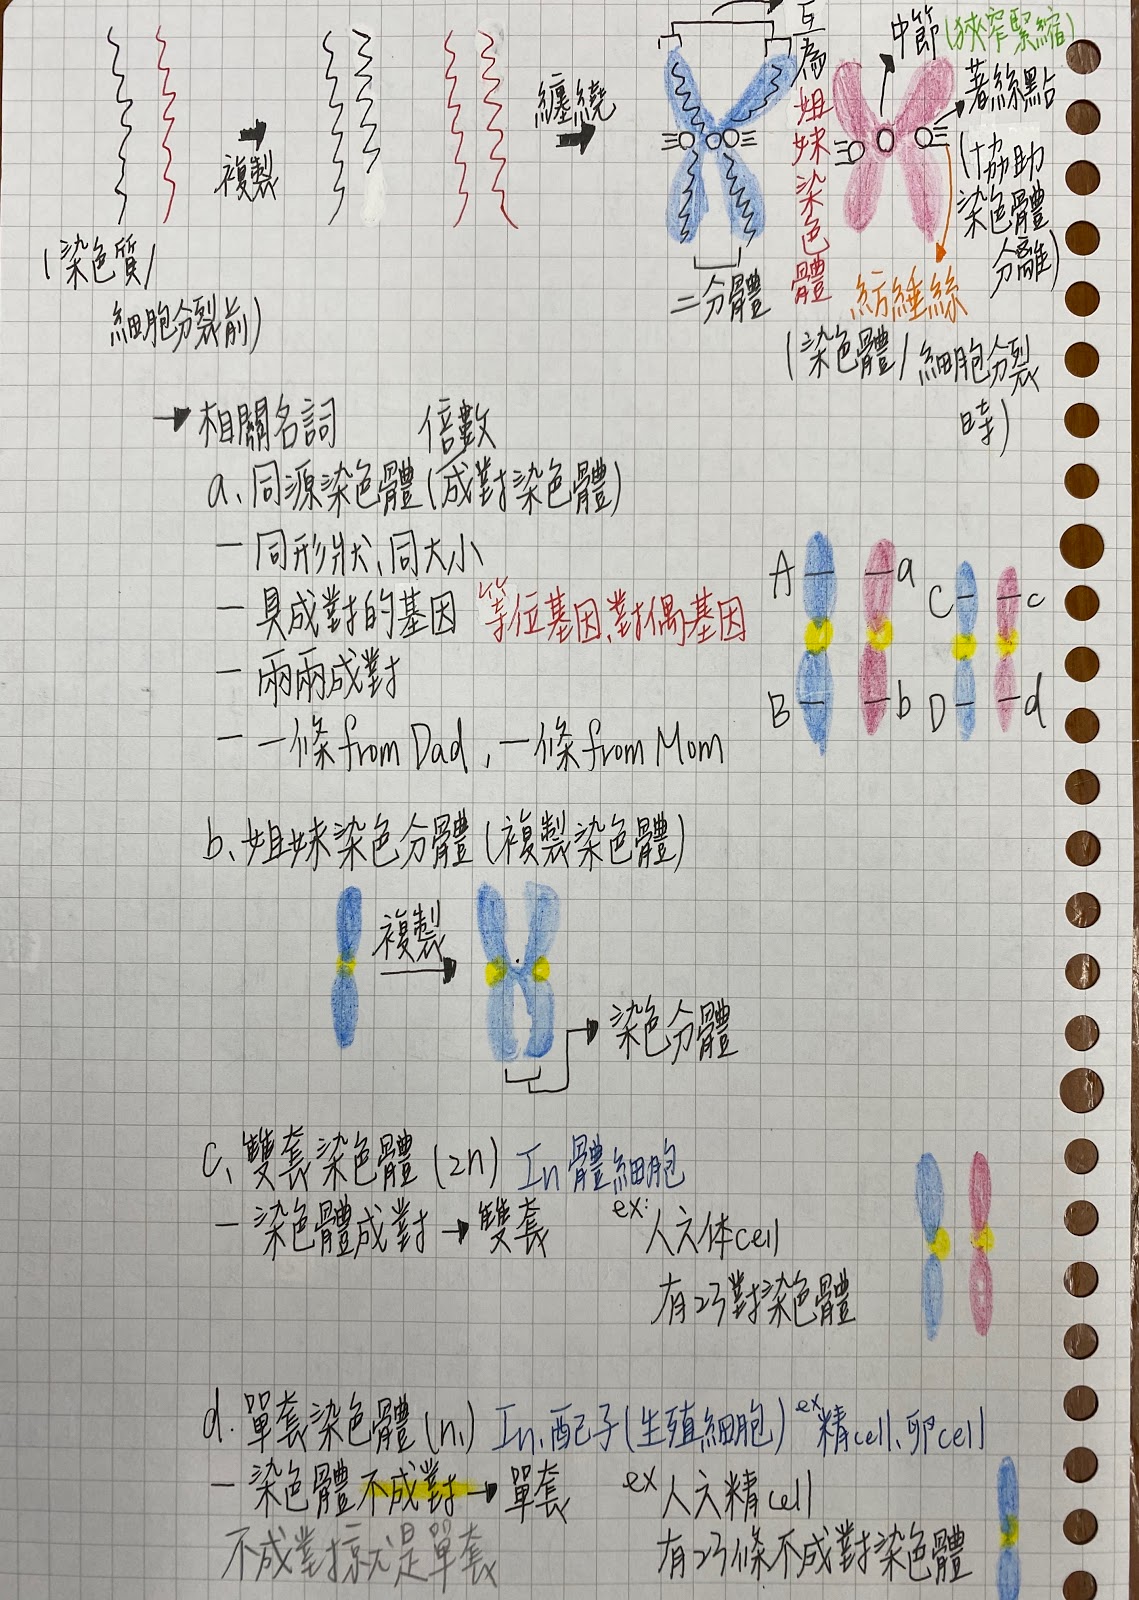 複製
纏繞
互為姐妹染色體
中節(狹窄緊縮)
著絲點
(協助
染色體
分離)
二分體
紡錘絲
(染色質/
細胞分裂前)
(染色體/細胞分裂
時)
→相關名詞 倍數
a、同源染色體(成對染色體)
－同形狀、同大小
－具成對的基因 等位基因、對偶基因
－兩兩成對
－一條from Dad,一條from Mom
A a C c
B b D d
b、姐妹染色分體(複製染色體)
複製
染色分體
c、雙套染色體(2n) In 體細胞
－染色體成對→雙套 ex:
cell
有23對染色體
d.單套染色體(n) In.配子(生殖細胞) ex 精cell、卵cell
－染色體不成對→單套 ex
精cell
不成對就是單套
有23條不成對染色體